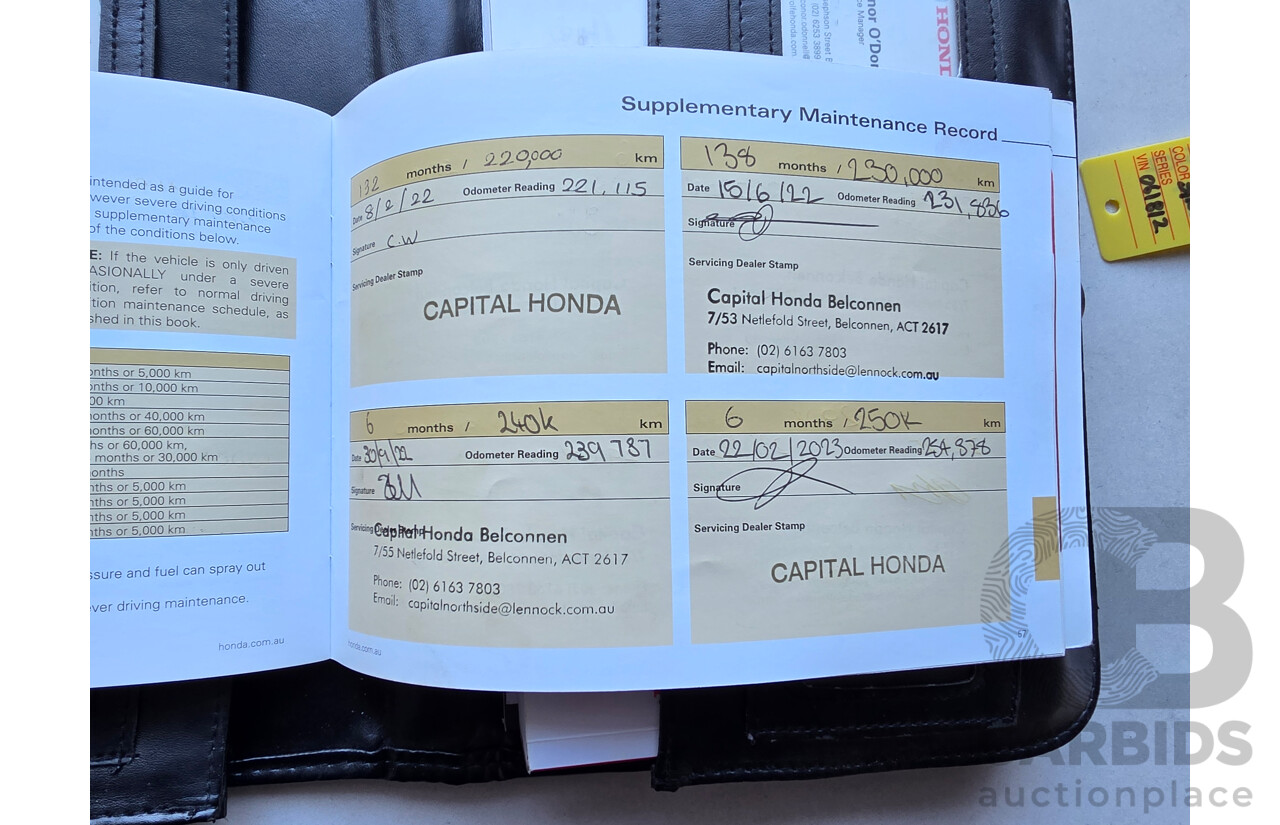 HONDA
Supplementary Maintenance Record
132 months / 220,000 km
Date 8/2/22 Odometer Reading 221,115
Signature C.W
Servicing Dealer Stamp
CAPITAL HONDA
138 months / 230,000 km
Date 15/6/22 Odometer Reading 231,836
Signature
Servicing Dealer Stamp
Capital Honda Belconnen
7/53 Netlefold Street, Belconnen, ACT 2617
Phone: (02) 6163 7803
Email: capitalnorthside@lennock.com.au
6 months / 240k km
Date 30/9/22 Odometer Reading 239 787
Signature
Servicing Dealer Stamp
Capital Honda Belconnen
7/55 Netlefold Street, Belconnen, ACT 2617
Phone: (02) 6163 7803
Email: capitalnorthside@lennock.com.au
6 months / 250K km
Date 22/02/2023 Odometer Reading 254,878
Signature
Servicing Dealer Stamp
CAPITAL HONDA
honda.com.au
67
intended as a guide for
wever severe driving conditions
supplementary maintenance
of the conditions below.
E: If the vehicle is only driven
ASIONALLY under a severe
ition, refer to normal driving
tion maintenance schedule, as
shed in this book.
onths or 5,000 km
onths or 10,000 km
00 km
months or 40,000 km
months or 60,000 km
hs or 60,000 km,
months or 30,000 km
onths
nths or 5,000 km
nths or 5,000 km
nths or 5,000 km
nths or 5,000 km
ssure and fuel can spray out
ver driving maintenance.
honda.com.au
COLOR
SERIES
VIN 061812
ARBIDS
auctionplace